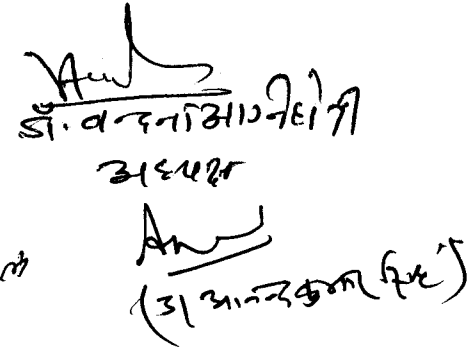 डॉ. वन्दना अग्निहोत्री
अध्यक्ष
(डा आनन्द कुमार सिंह)